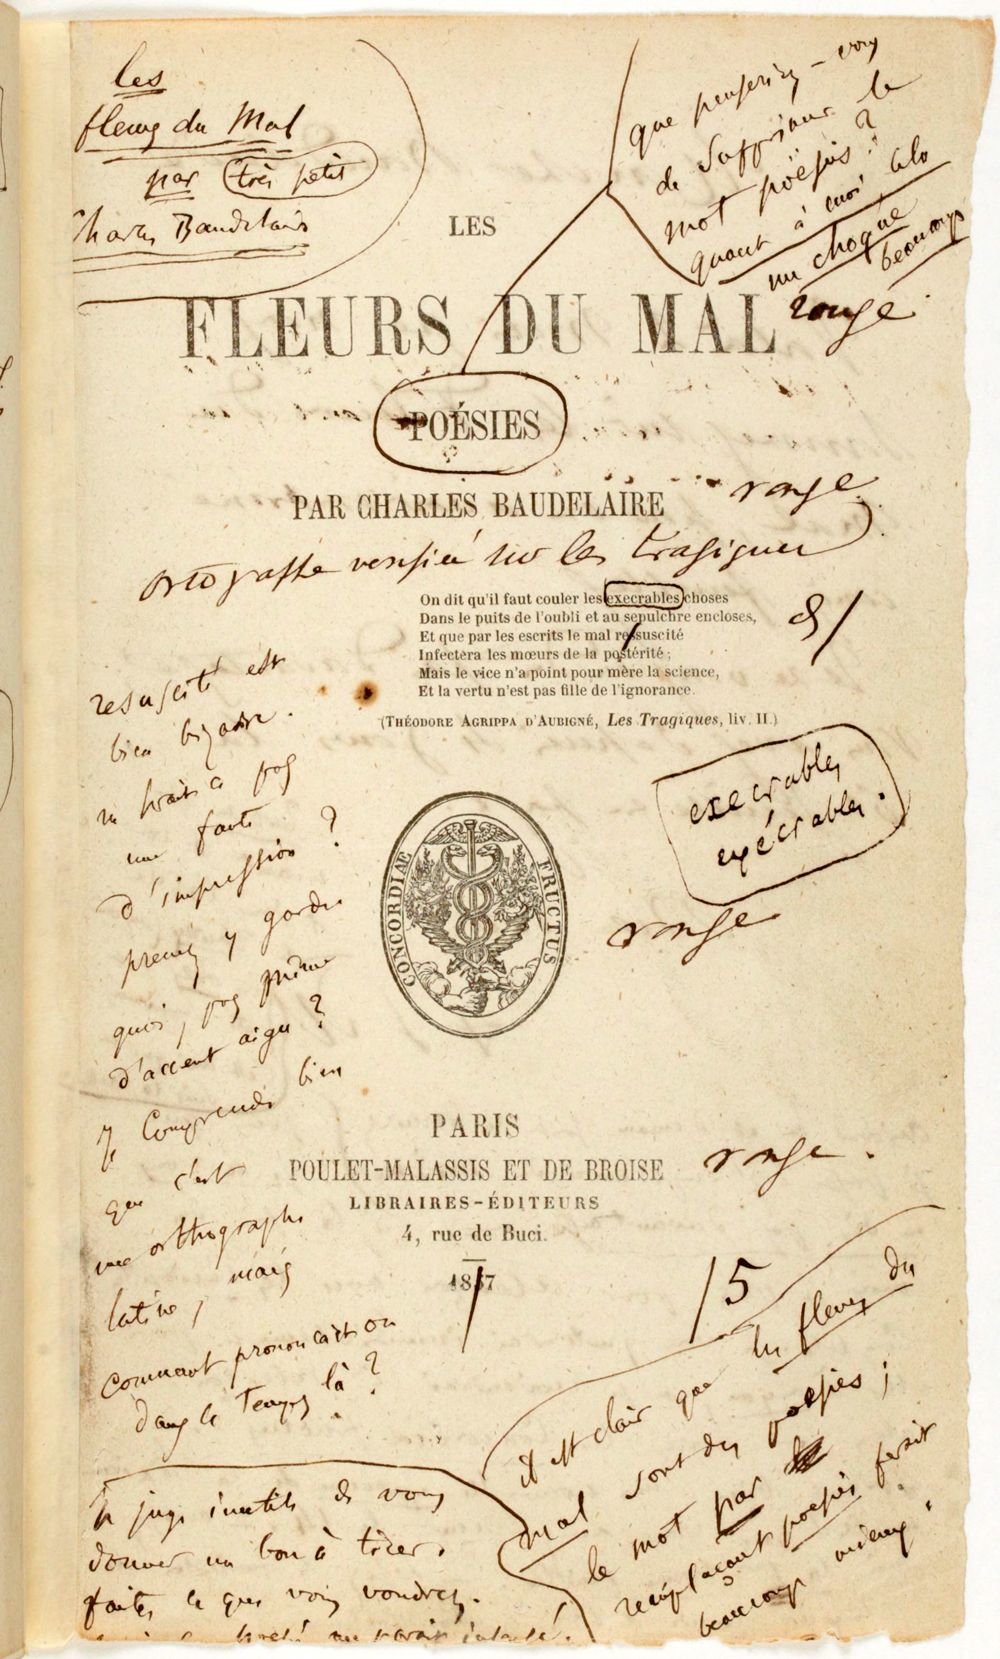 les
fleurs du Mal
par très petit
Charles Baudelaire
que penseriez-vous
de supprimer le
mot poësies ?
quant à moi cela
me choque
beaucoup
rouge.
LES
FLEURS DU MAL
POÉSIES
PAR CHARLES BAUDELAIRE
rouge
ortographe verifiée sur les tragiques
On dit qu'il faut couler les execrables choses
Dans le puits de l'oubli et au sepulchre encloses,
Et que par les escrits le mal ressuscité
Infectera les mœurs de la postérité ;
Mais le vice n'a point pour mère la science,
Et la vertu n'est pas fille de l'ignorance.
(THÉODORE AGRIPPA D'AUBIGNÉ, Les Tragiques, liv. II.)
resuscité est
bien bizarre.
ne serait-ce pas
une faute
d'impression ?
prenez y garde
quoi, pas même
d'accent aigu ?
Je comprends bien
que c'est
une orthographe
latine, mais
comment prononçait on
dans le temps là ?
execrables
exécrables.
rouge
CONCORDIÆ FRUCTUS
PARIS
POULET-MALASSIS ET DE BROISE
rouge.
LIBRAIRES-ÉDITEURS
4, rue de Buci.
1857
/5
il est clair que les fleurs du
mal sont des poesies ;
le mot par
remplaçant poesies ferait
beaucoup mieux.
Je juge inutile de vous
donner un bon à tirer.
faites ce que vous voudrez.